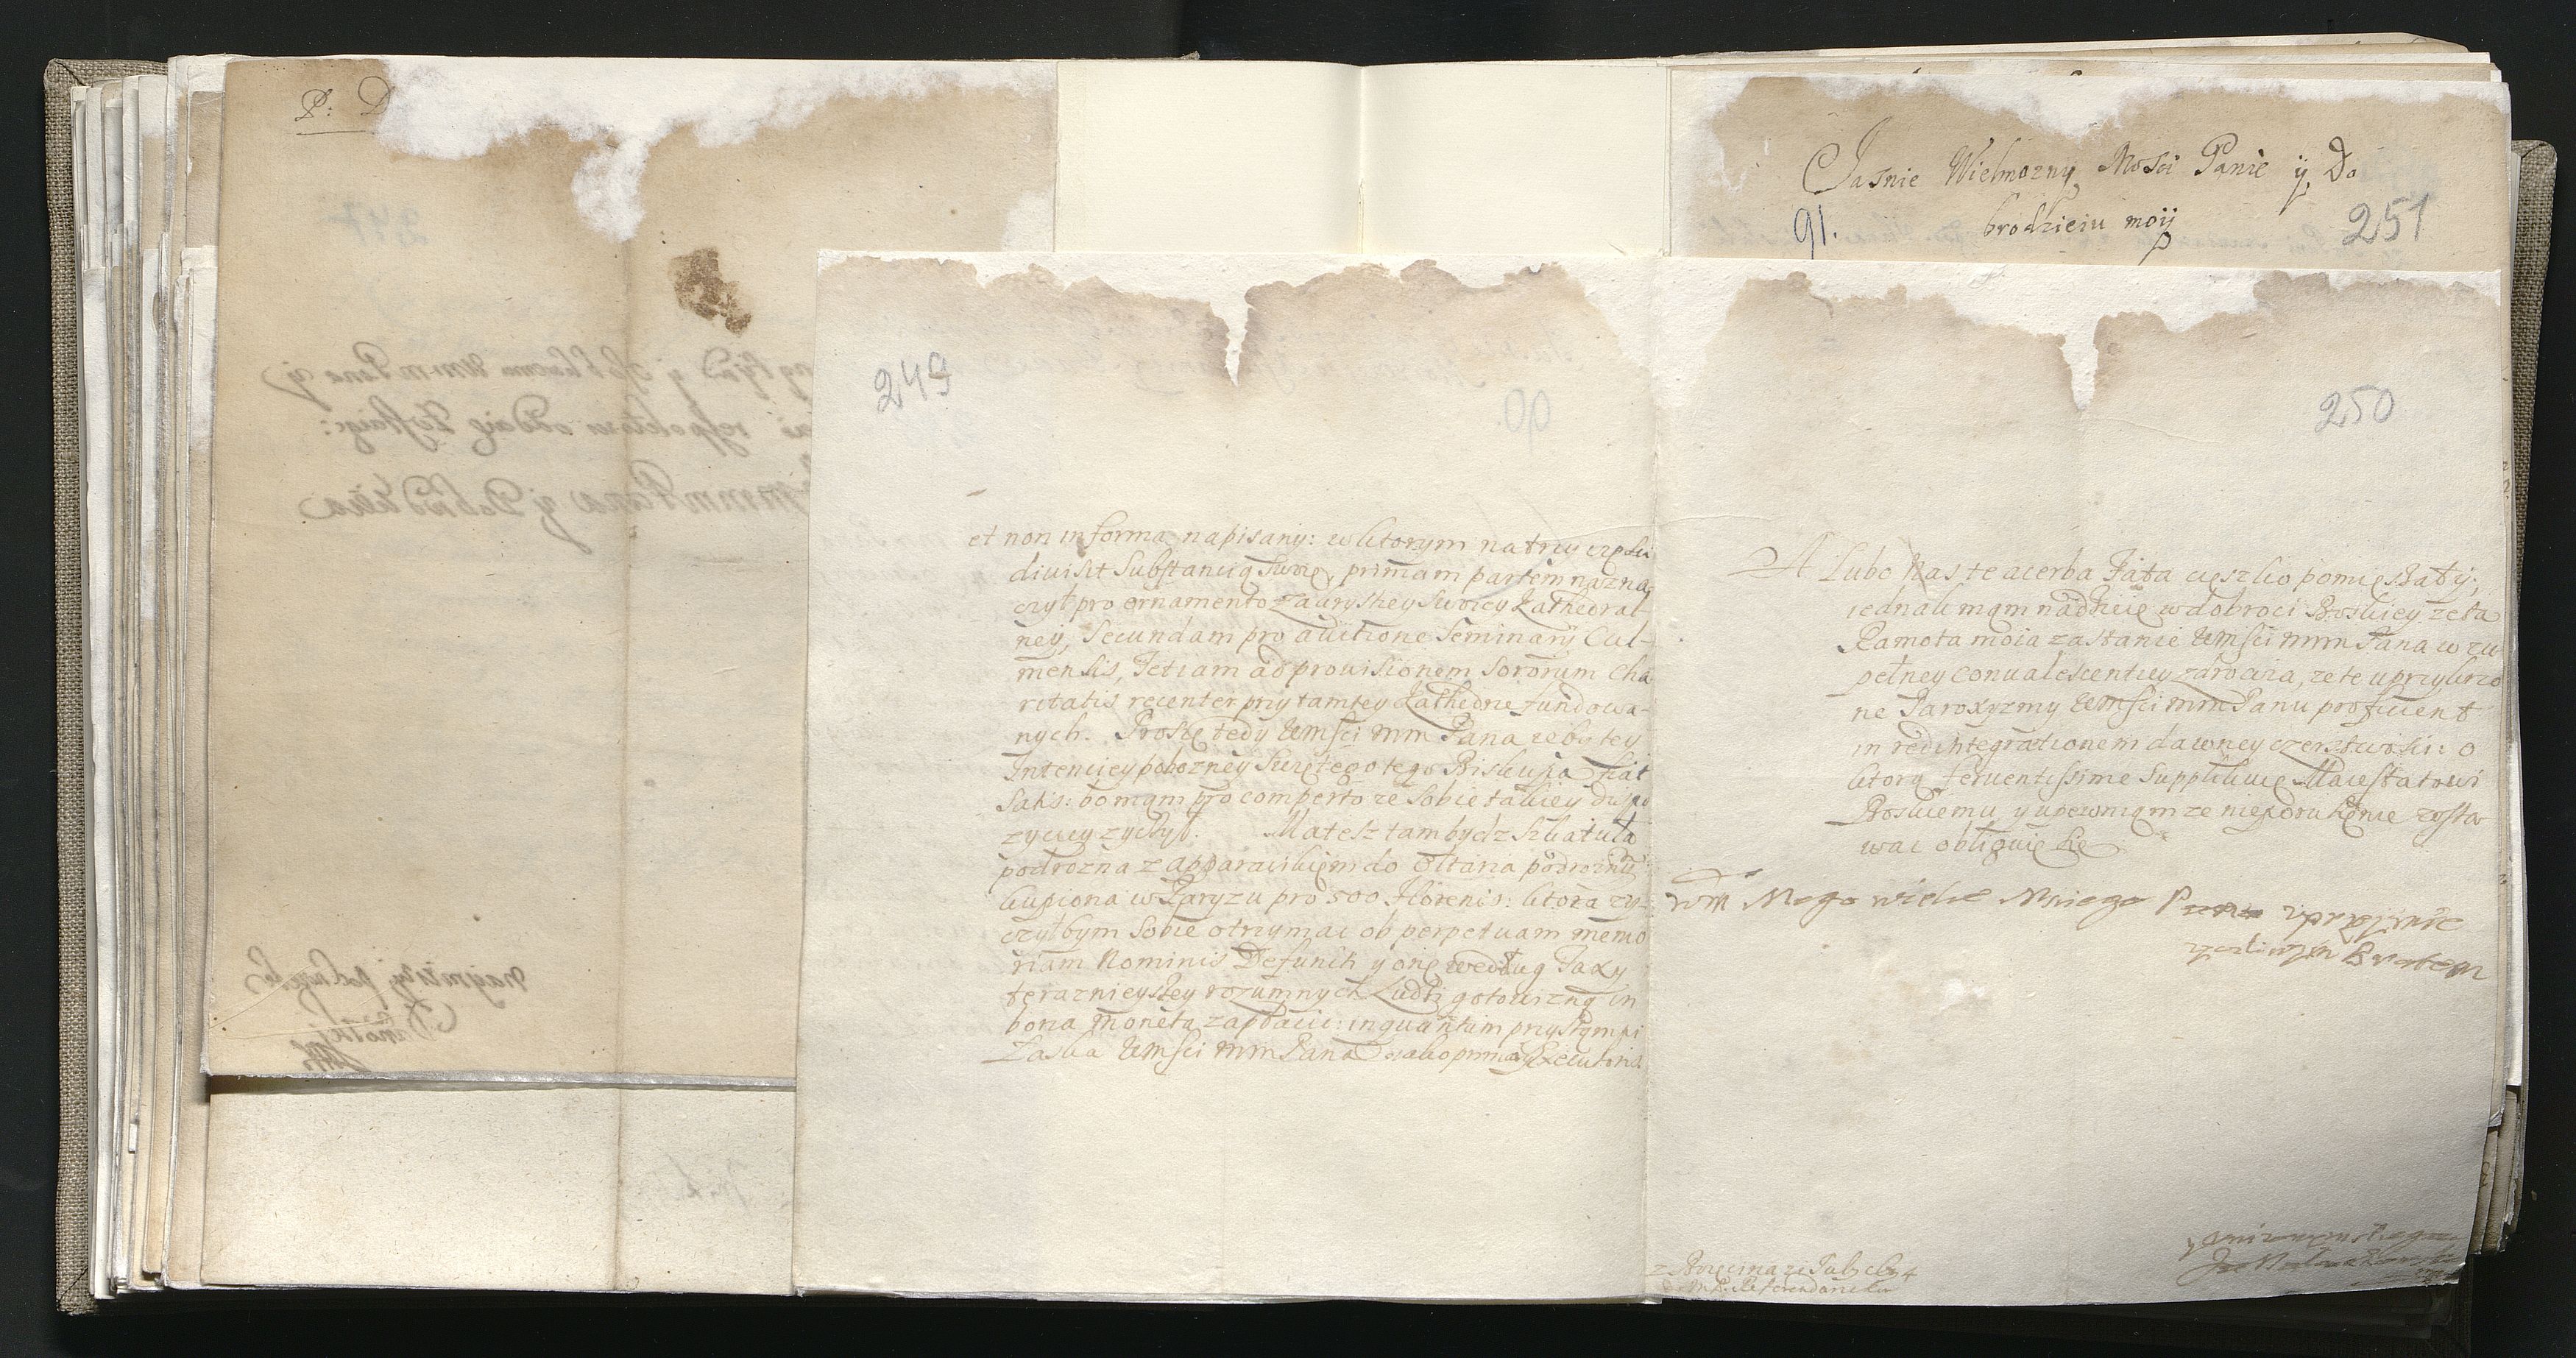 P: D
Jasnie Wielmozny Mosci Panie y Do
brodzieiu moy
91.
251
249
et non in forma napisany: w ktorym na trzy częsci
diuisit Substancią swoię, primam partem nazna
czył pro ornamento zakrystyey swoiey Kathedral-
ney, Secundam pro auctione Seminarÿ Cul-
mensis, Tertiam ad prouisionem Sororum Cha
ritatis recenter przy tamtey Kathedrze fundowa-
nych. Proszę tedy WMsci mm Pana zeby tey
Intenciey pobozney Swiętego tego Biskupa fiat
satis: bo mąm pro comperto ze sobie takiey dispo
zyciey zyczył. Matesz tam bydz szkatuła
podrozna z apparacikiem do Ołtarza podrozny
kupiona w Paryzu pro 500 Florenis: ktorą zy-
czył bym Sobie otrzymac ob perpetuam memo
riam Nominis Defuncti y onę według Taxy
teraznieyszey rozumnych Ludzi gotowizną in
bona moneta zapłacic: inquantum przystąmpi
Łaska WMsci mm Pana iako primarÿ Executora
250
A lubo nas te acerba Fata cięszko pomięszały;
iednak mąm nadzieię w dobroci Boskiey ze ta
Ramota moia zastanie WMsci mm Pana w zu
pełney conualescentiey zdrowia, ze te uprzykrzo
ne Paroxyzmy WMsci mm Panu proficient
in redintegrationem dawney czerstwosci: o
ktorą feruentissime Supplikuię Maiestatowi
Boskiemu, y upewniąm ze nieporuszenie zosta
wac obliguię się
WM Mego wielce Msciego Pana uprzejmie
zyczliwym Bratem
z Borzęcina ze Julij